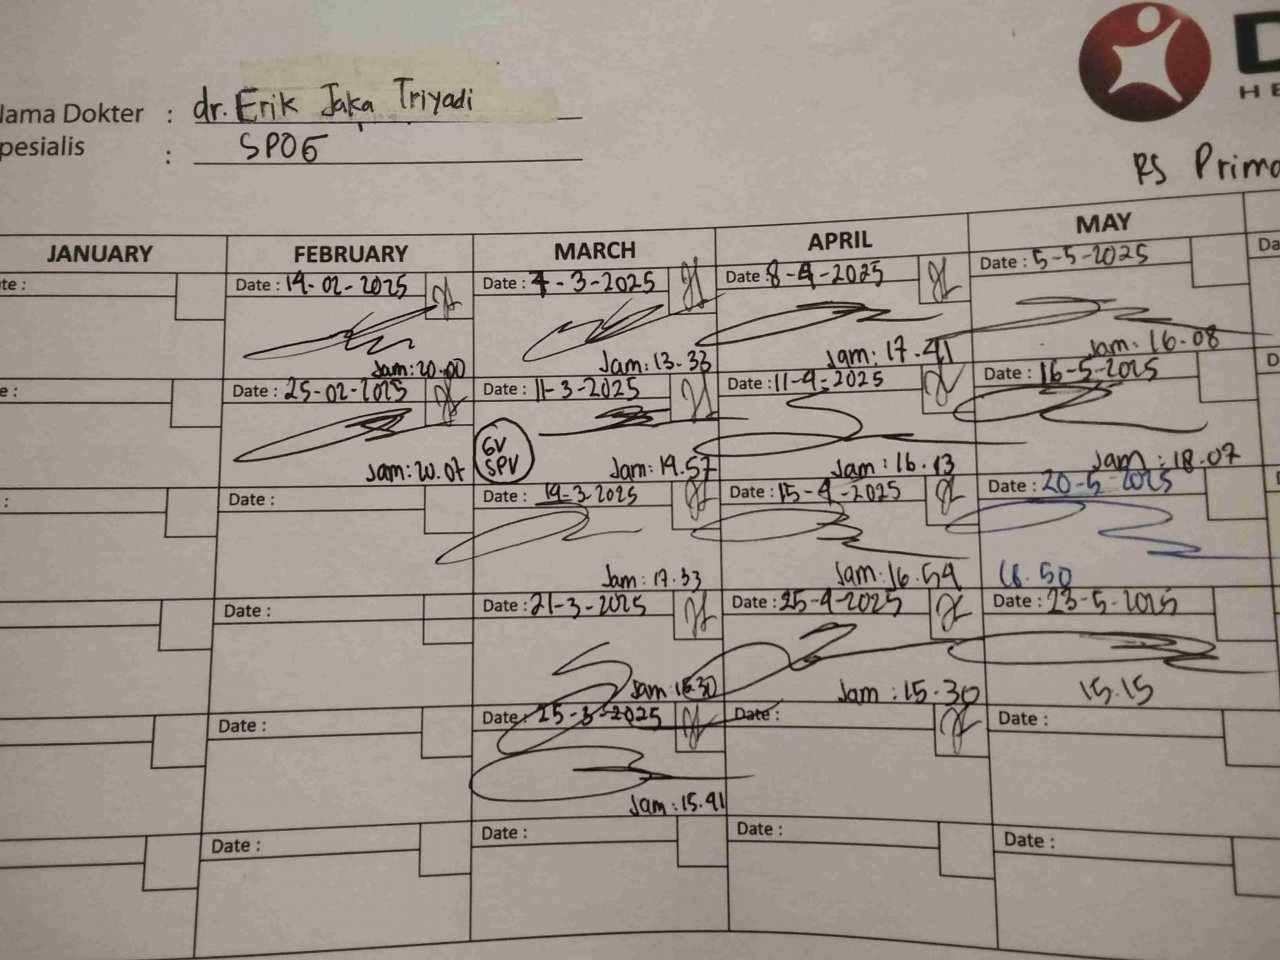 Nama Dokter : dr. Erik Jaka Triyadi
pesialis : SPOG
D
HE
RS Prima
JANUARY FEBRUARY MARCH APRIL MAY
te: Date : 14-02-2025 Date : 7-3-2025 Date : 8-4-2025 Date : 5-5-2025 Da
Jam: 20.00 Jam: 13.33 Jam: 17.41 Jam: 16.08
e: Date : 25-02-2025 Date : 11-3-2025 Date : 11-4-2025 Date : 16-5-2025 D
GV
SPV
Jam: 20.07 Jam: 19.57 Jam: 16.13 Jam: 18.07
: Date : Date : 19-3-2025 Date : 15-4-2025 Date : 20-5-2025
Jam: 17.33 Jam: 16.54 16.50
Date : Date : 21-3-2025 Date : 25-4-2025 Date : 23-5-2025
Jam Jam : 15.30 15.15
Date : Date : 25-3-2025 Date : Date :
Jam : 15.41
Date : Date : Date : Date :